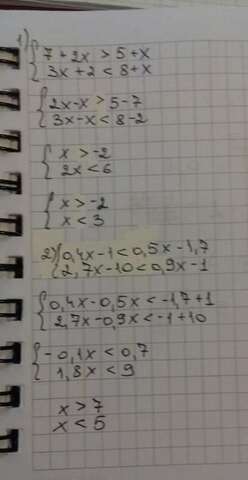 1) { 7 + 2x > 5 + x
3x + 2 < 8 + x
{ 2x - x > 5 - 7
3x - x < 8 - 2
{ x > -2
2x < 6
{ x > -2
x < 3
2) { 0,4x - 1 < 0,5x - 1,7
2,7x - 10 < 0,9x - 1
{ 0,4x - 0,5x < -1,7 + 1
2,7x - 0,9x < -1 + 10
{ -0,1x < 0,7
1,8x < 9
x > 7
x < 5